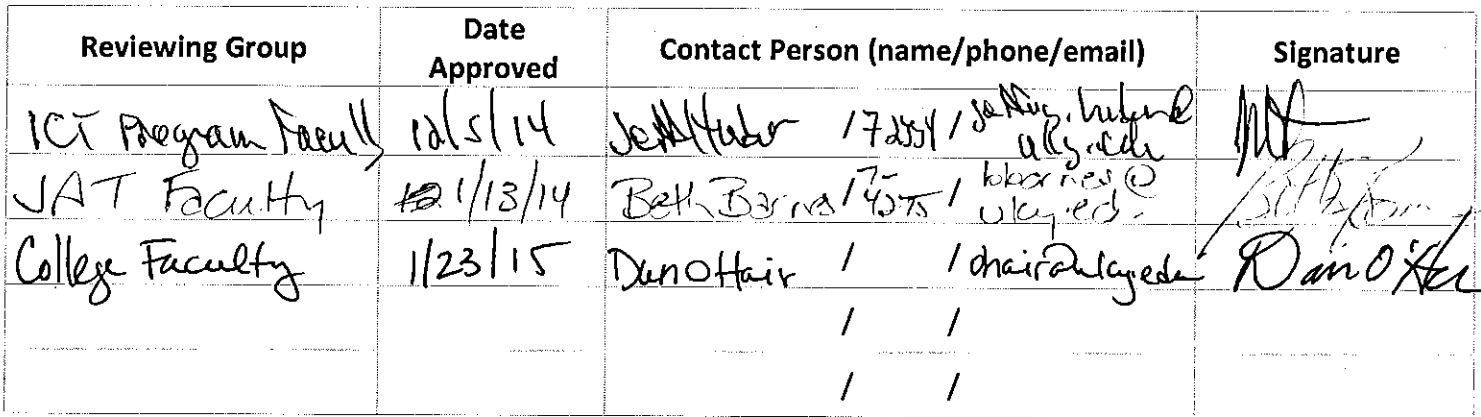 Reviewing Group Date Approved Contact Person (name/phone/email) Signature
ICT Program Faculty 12/5/14 Jeff / 7 /
JAT Faculty 1/13/14 Beth Barnes / 7- 4275 / bbarnes@
College Faculty 1/23/15 Dan O'Hair / / ohair@uky.edu Dan O'Hair
/ /
/ /